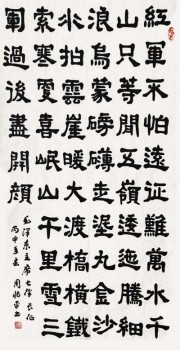 紅軍不怕遠征難萬水千
山只等閒五嶺逶迤騰細
浪烏蒙磅礴走泥丸金沙
水拍雲崖暖大渡橋橫鐵
索寒更喜岷山千里雪三
軍過後盡開顏
毛澤東主席七律長征
丙申年